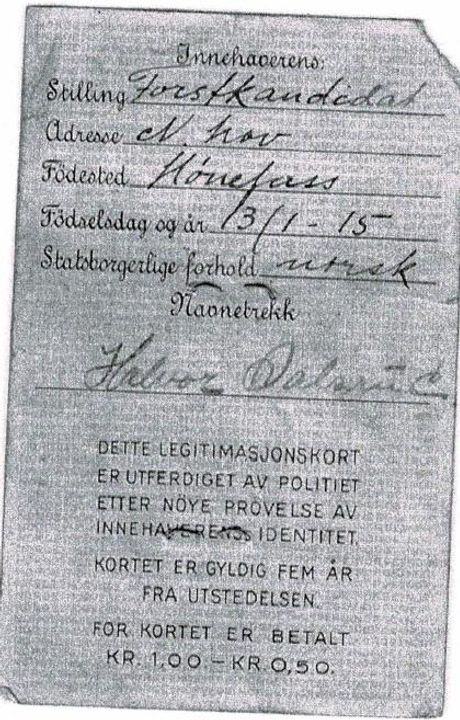 Innehaverens:
Stilling Forstkandidat
Adresse N. hov
Födested Hönefoss
Födselsdag og år 13/1 - 15
Statsborgerlige forhold norsk
Navnetrekk
Halvor
DETTE LEGITIMASJONSKORT
ER UTFERDIGET AV POLITIET
ETTER NÖYE PRÖVELSE AV
INNEHAVERENS IDENTITET.
KORTET ER GYLDIG FEM ÅR
FRA UTSTEDELSEN.
FOR KORTET ER BETALT
KR. 1,00 – KR. 0,50.